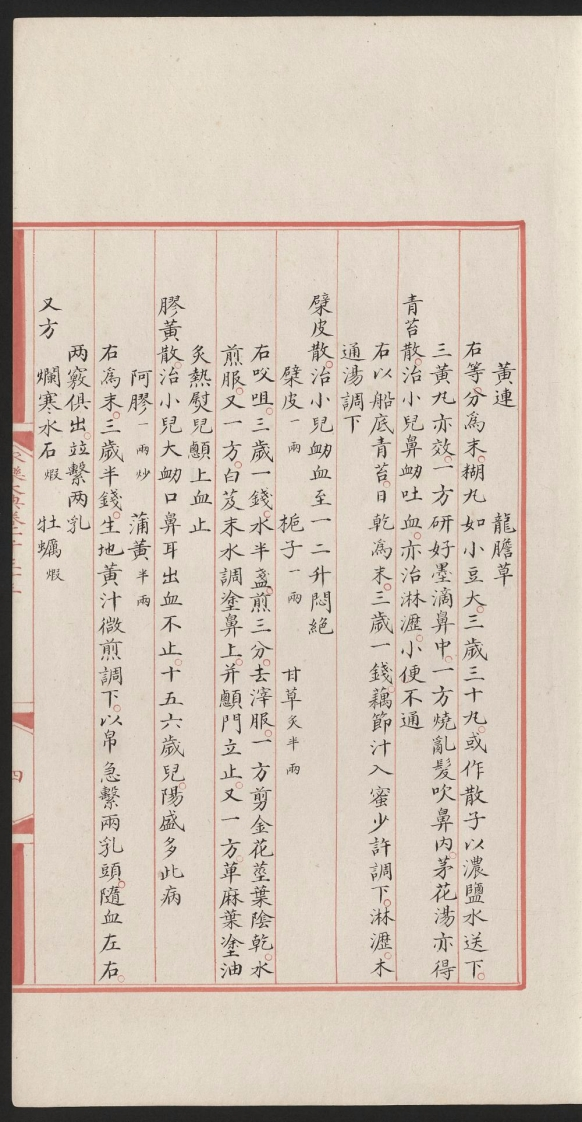 黃連　龍膽草
右等分為末。糊丸如小豆大。三歲三十丸。或作散子以濃鹽水送下。
三黃丸亦效。一方研好墨滴鼻中。一方燒亂髮吹鼻内。茅花湯亦得
青苔散。治小兒鼻衂吐血。亦治淋瀝。小便不通
右以船底青苔。日乾為末。三歲一錢。藕節汁入蜜少許調下。淋瀝。木
通湯調下
檗皮散。治小兒衂血至一二升悶絶
檗皮一兩　梔子一兩　甘草炙半兩
右㕮咀。三歲一錢。水半盞。煎三分。去滓服。一方剪金花莖葉陰乾。水
煎服。又一方。白芨末水調塗鼻上。并顖門立止。又一方。萆麻葉塗油
炙熱熨兒顖上血止
膠黃散。治小兒大衂口鼻耳出血不止。十五六歲兒。陽盛多此病
阿膠一兩炒　蒲黃半兩
右為末。三歲半錢。生地黃汁微煎調下。以帛急繫兩乳頭。隨血左右。
两竅俱出。竝繫两乳
又方　爛寒水石煅　牡蠣煅
四